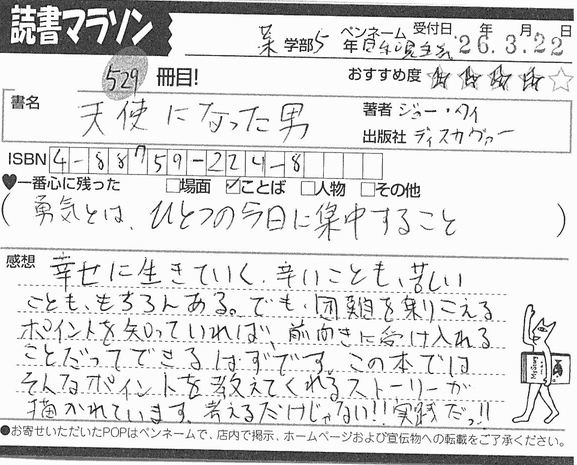 読書マラソン
薬学部5年 ペンネーム 自然現主義 受付日 '26.3.22 年月日
529冊目!
おすすめ度 ★★★★☆
書名 天使になった男
著者 ジョー・タイ
出版社 ディスカヴァー
ISBN 4-88759-224-8
♥一番心に残った □場面 ☑ことば □人物 □その他
(勇気とは、ひとつの今日に集中すること)
感想 幸せに生きていく。辛いことも、苦しい
ことも、もちろんある。でも、困難を乗りこえる
ポイントを知っていれば、前向きに受け入れる
ことだってできるはずです。この本では
そんなポイントを教えてくれるストーリーが
描かれています。考えるだけじゃない!!実践だっ!!
●お寄せいただいたPOPはペンネームで、店内で掲示、ホームページおよび宣伝物への転載をご了承ください。